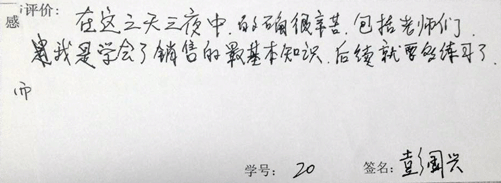 感评价:在这三天三夜中,的确很辛苦,包括老师们,
是我是学会了销售的最基本知识,后续就要多练习了.
而
学号: 20 签名: 彭国兴